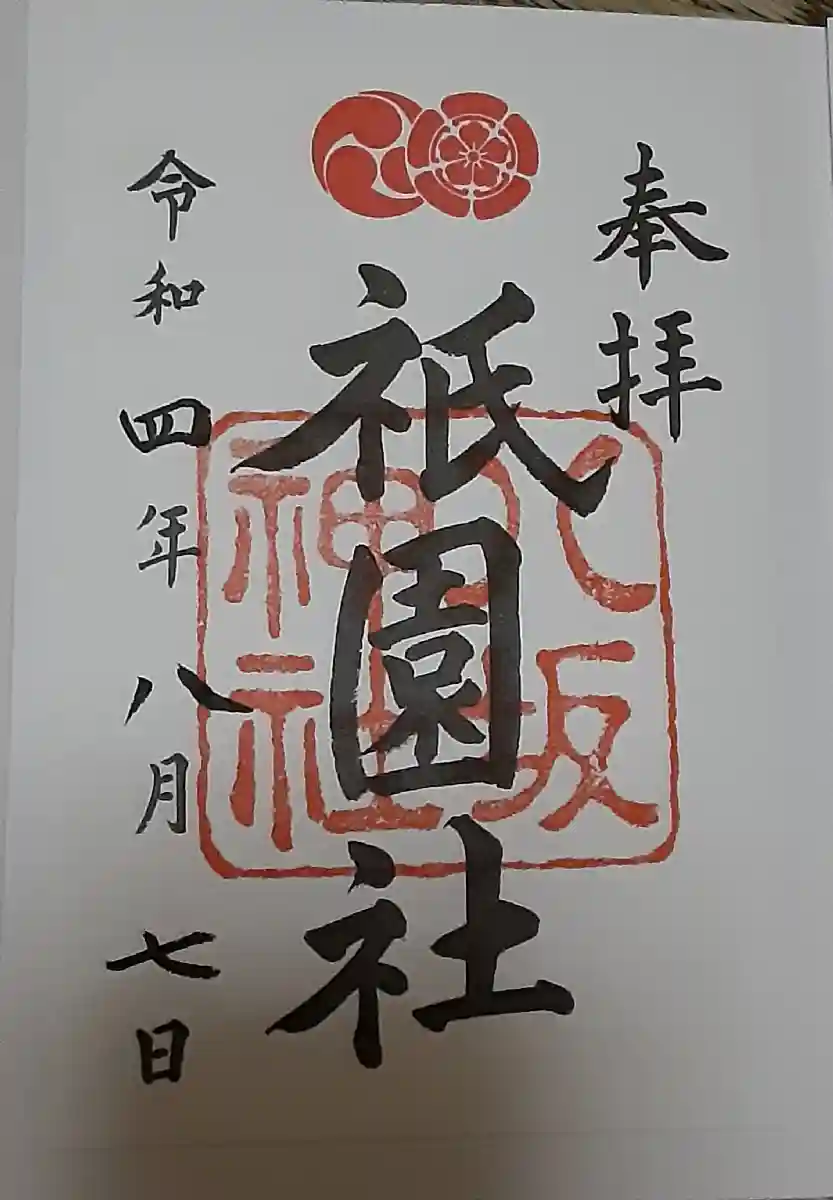 奉拝
祇園社
八坂神社
令和四年八月七日